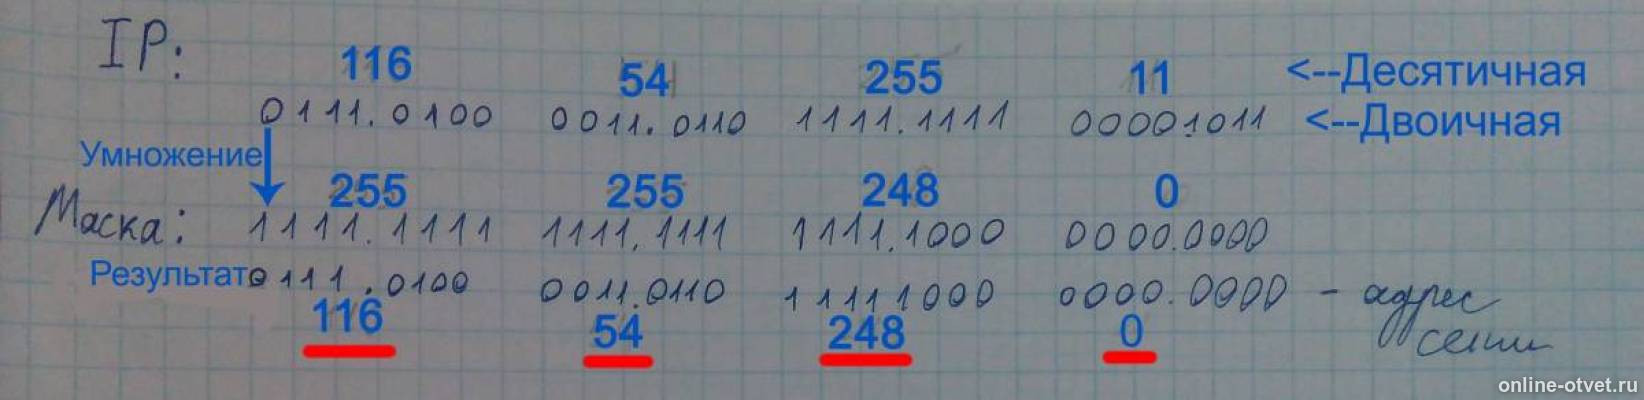 IP:
116 54 255 11 <--Десятичная
0111.0100 0011.0110 1111.1111 0000.1011 <--Двоичная
Умножение
255 255 248 0
Маска: 1111.1111 1111.1111 1111.1000 0000.0000
Результат 0111.0100 0011.0110 11111000 0000.0000 - адрес
116 54 248 0 сети
online-otvet.ru